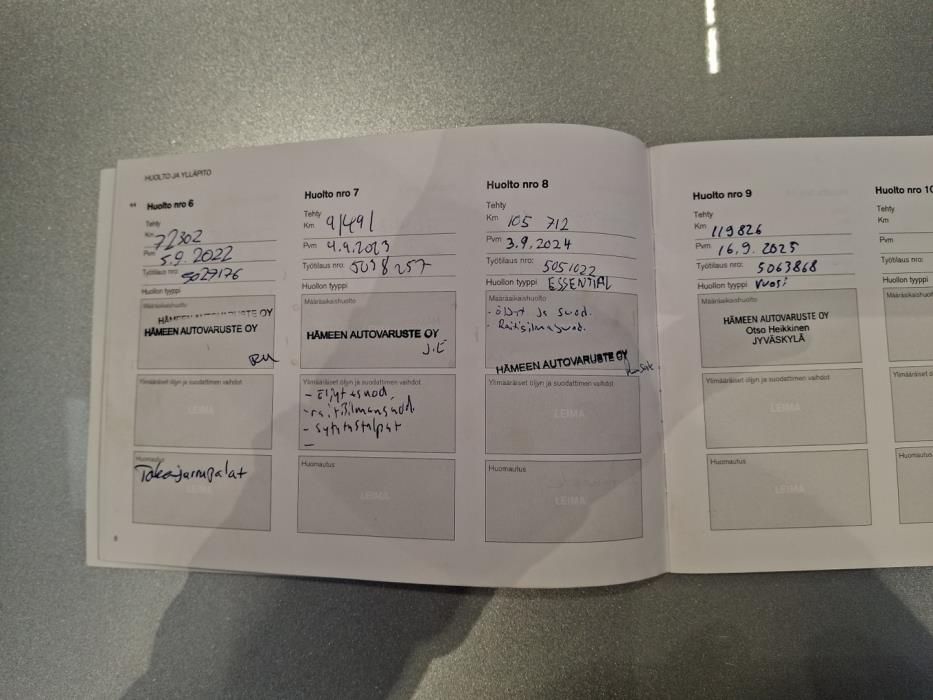 HUOLTO JA YLLÄPITO
Huolto nro 6
Tehty
Km 72302
Pvm 5.9.2022
Työtilaus nro: 5027176
Huollon tyyppi
Määräaikaishuolto
HÄMEEN AUTOVARUSTE OY
HÄMEEN AUTOVARUSTE OY
Ylimääräiset öljyn ja suodattimen vaihdot
LEIMA
Huomautus
Takajarrupalat
LEIMA
8
Huolto nro 7
Tehty
Km 91491
Pvm 4.9.2023
Työtilaus nro:
Huollon tyyppi
Määräaikaishuolto
HÄMEEN AUTOVARUSTE OY
J.E
Ylimääräiset öljyn ja suodattimen vaihdot
- Öljyt + suod.
- raitisilmansuod.
- sytytystulpat
Huomautus
LEIMA
Huolto nro 8
Tehty
Km 105 712
Pvm 3.9.2024
Työtilaus nro: 5051022
Huollon tyyppi ESSENTIAL
Määräaikaishuolto
- öljyt ja suod.
- Raitisilmasuod.
HÄMEEN AUTOVARUSTE OY
Ylimääräiset öljyn ja suodattimen vaihdot
LEIMA
Huomautus
LEIMA
Huolto nro 9
Tehty
Km 119826
Pvm 16.9.2025
Työtilaus nro: 5063868
Huollon tyyppi Vuosi
Määräaikaishuolto
HÄMEEN AUTOVARUSTE OY
Otso Heikkinen
JYVÄSKYLÄ
Ylimääräiset öljyn ja suodattimen vaihdot
LEIMA
Huomautus
LEIMA
Huolto nro 10
Tehty
Km
Pvm
Työtilaus nro:
Huollon
Määräaikaishuol
Ylimääräiset ö
Huomautus